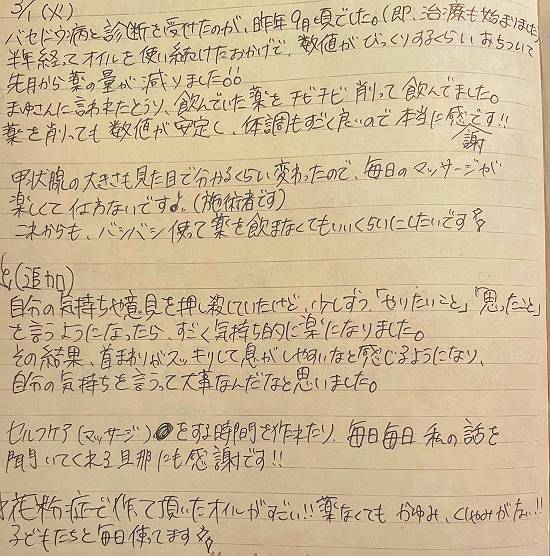 3/1 (火)
バセドウ病と診断を受けたのが、昨年9月頃でした。(即、治療も始まりました)
半年経ってオイルを使い続けたおかげで、数値がびっくりするくらいおちついて
先月から薬の量が減りました!!
まゆさんに言われたとうり、飲んでいた薬をチビチビ削って飲んでました。
薬を削っても数値が安定し、体調もすごく良いので本当に感謝です!!
甲状腺の大きさも見た目で分かるくらい変わったので、毎日のマッサージが
楽しくて仕方ないです♪。(施術者です)
これからも、バシバシ使って薬を飲まなくてもいいくらいにしたいです
(追加)
自分の気持ちや意見を押し殺していたけど、少しずつ「やりたいこと」「思ったこと」
を言うようになったら、すごく気持ち的に楽になりました。
その結果、首まわりがスッキリして息がしやすいなと感じるようになり、
自分の気持ちを言うって大事なんだなと思いました。
セルフケア(マッサージ)をする時間を作れたり、毎日毎日私の話を
聞いてくれる旦那にも感謝です!!
花粉症で作って頂いたオイルがすごい!!薬なくてもかゆみ、くしゃみがない!!
子どもたちと毎日使ってます